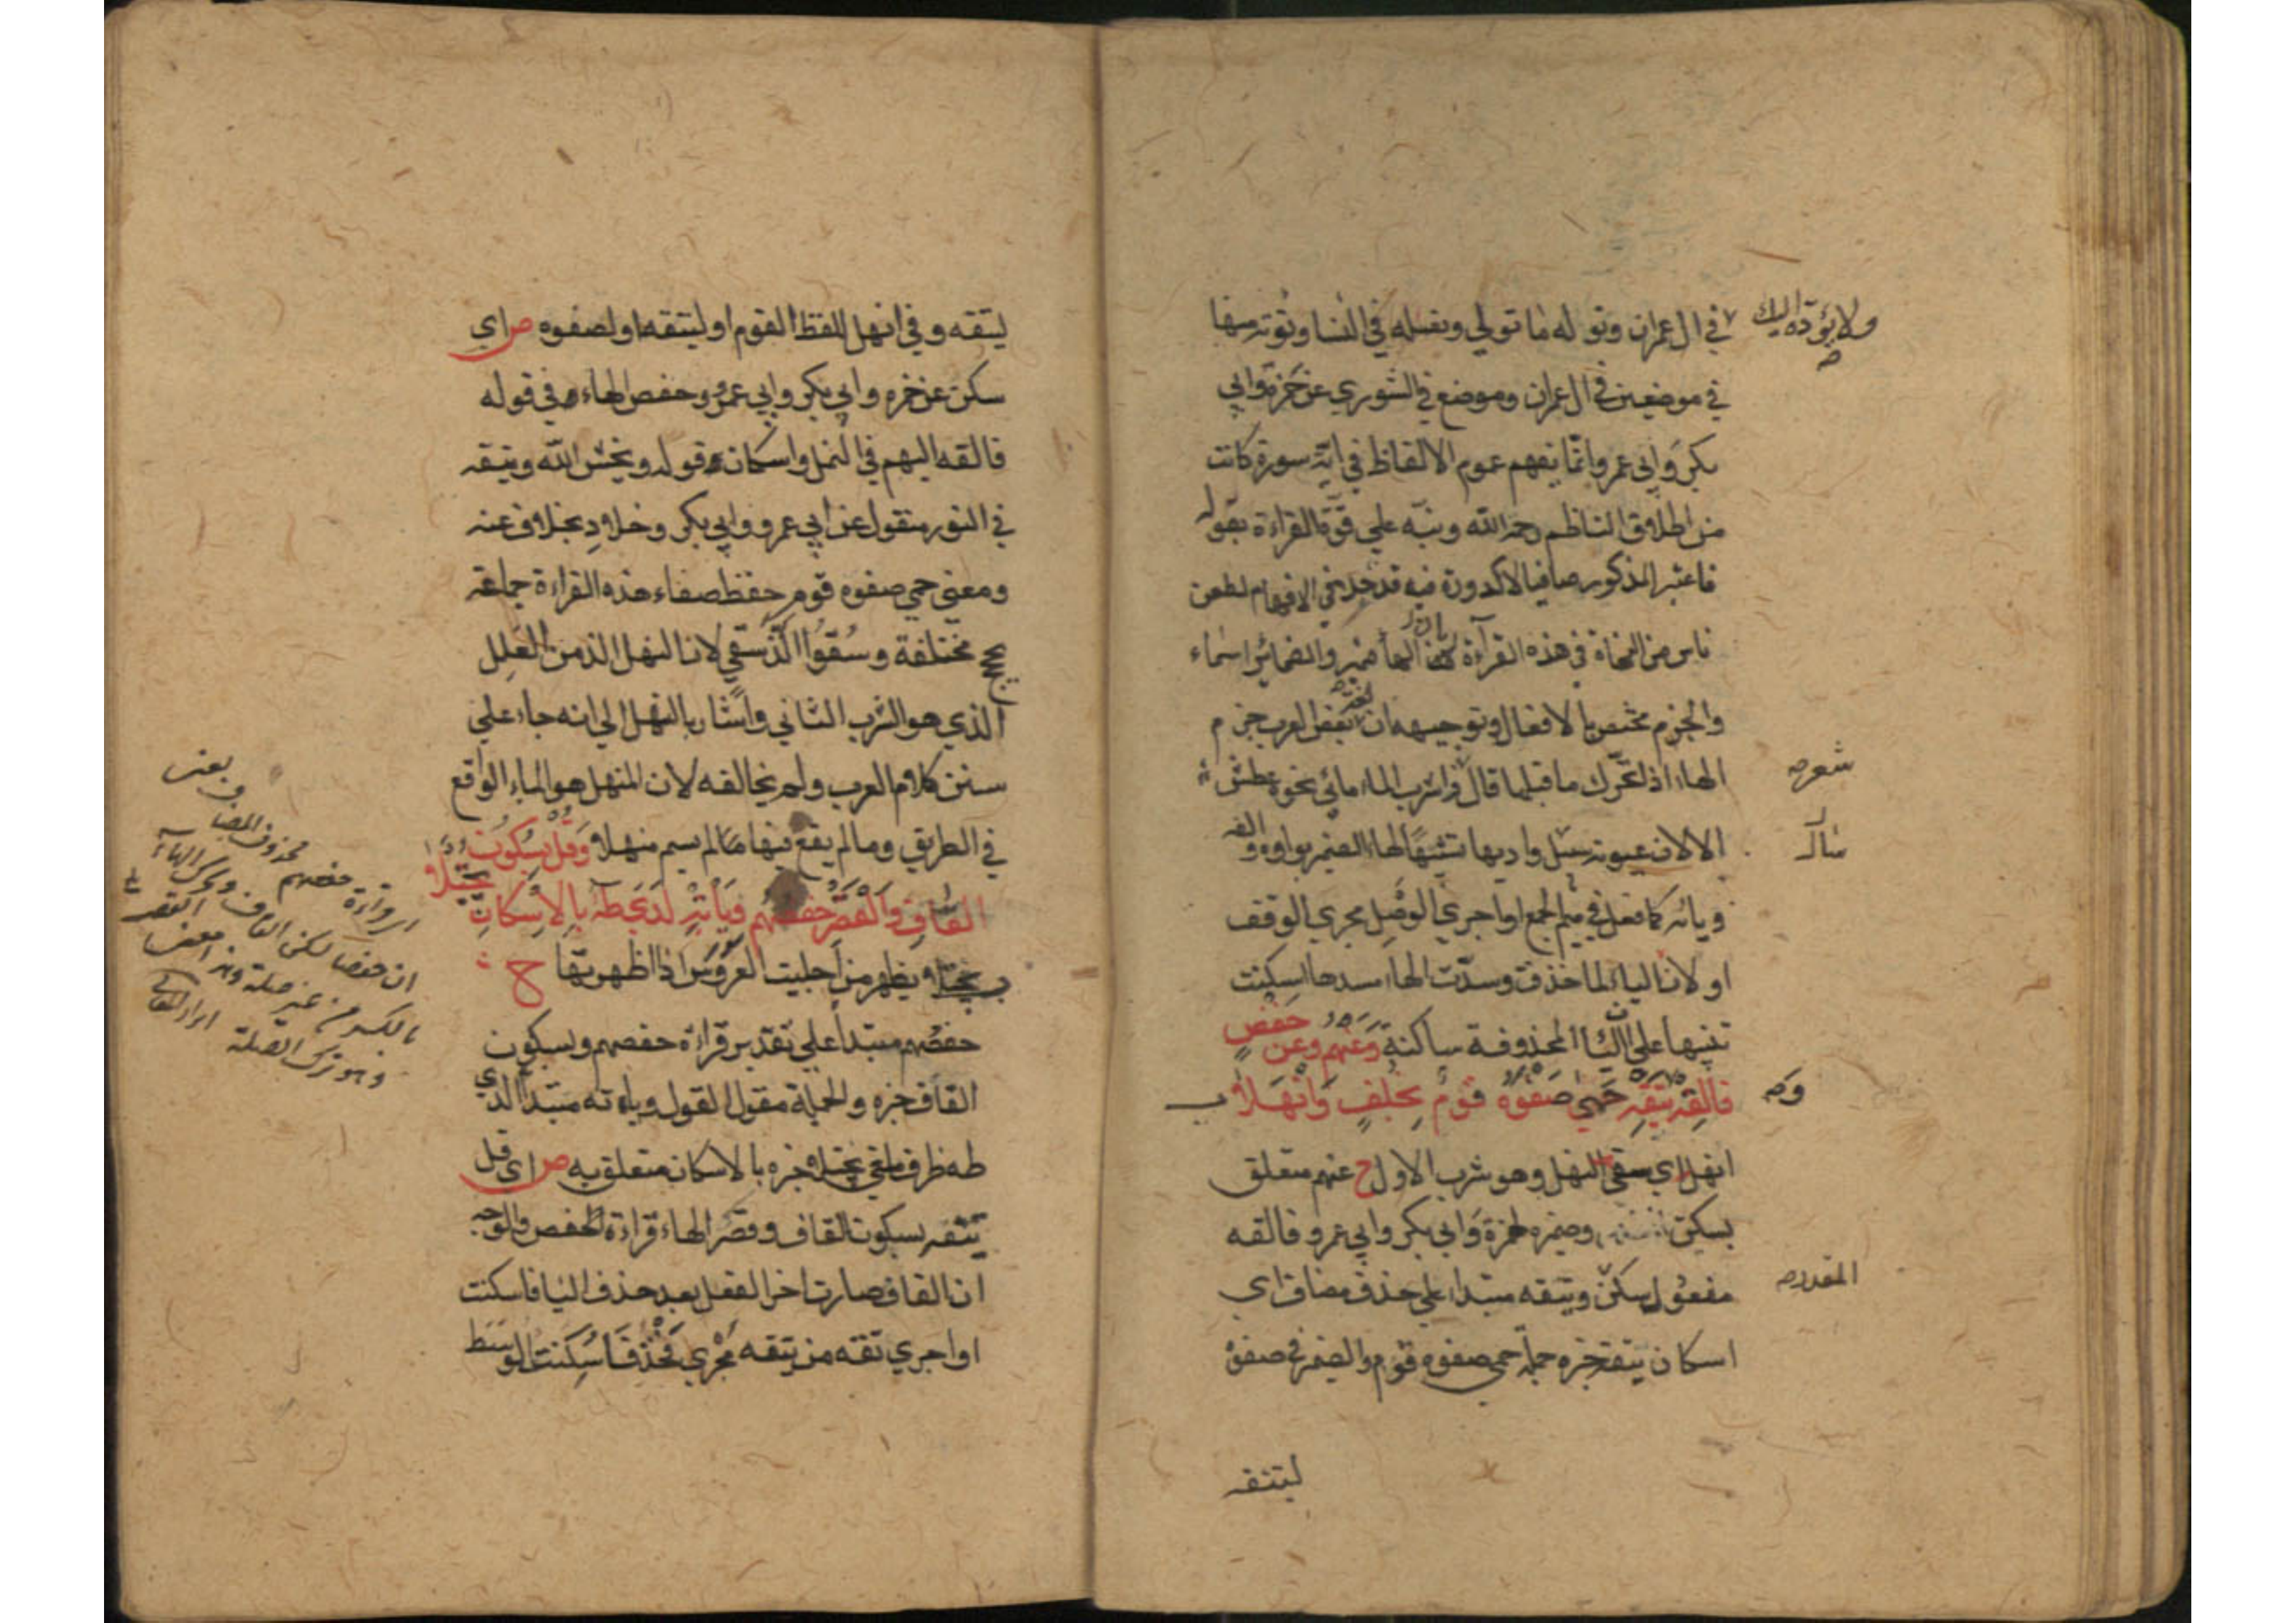 ولا يؤده اليك
في ال عمران ونوله ما تولي ونصله في النسا ونؤته منها
في موضعين في ال عمران وموضع في الشوري عن حمزة وابي
بكر وابي عمرو وانما يفهم عموم الالفاظ في اية سورة كانت
من اطلاق الناظم رحمه الله ونبه علي قوة القراءة بقوله
فاعتبر المذكور صافيا لا كدورة فيه قد جلا في الافهام لطعن
ناس من النحاة في هذه القرآءة بان الهاء ضمير والضمائر اسماء
والجزم مختص بالافعال وتوجيهه ان بعض العرب جزم
الهاء اذا تحرك ما قبلها قال واشرب الماء مائي نحوه عطش
شعر
الا لان عيونه سيل واديها تشبيها لهاء الضمير بواوه والفه
ويائه كما فعل في ميم الجمع او اجري الوصل مجري الوقف
او لان الياء لما حذفت وسدت الهاء مسدها اسكنت
تنبيها علي ان الياء المحذوفة ساكنة وَعَنهم وعن حفصٍ
فالقه يتقه حَمَي صَفْوَهُ قَوْمٌ بخُلفٍ وَانْهَلَا ب
انهل اي سقي النهل وهو شرب الاول ح عنهم متعلق
بسكن وضميره لحمزة وابي بكر وابي عمرو فالقه
مفعول سكن ويتقه مبتدا علي حذف مضاف اي
المقدر
اسكان يتقه خبره جملة حمي صفوه قوم والضمير في صفوه
ليتقه
ليتقه وفي انهل للفظ القوم او ليتقه او لصفوه ص اي
سكن عن حمزه وابي بكر وابي عمرو وحفص الهاء في قوله
فالقه اليهم في النمل واسكان قوله ويخش الله ويتقه
في النور منقول عن ابي عمرو وابي بكر وخلاد بخلاف عنه
ومعني حمي صفوه قوم حفظ صفاء هذه القراءة جماعة
مختلفة وسُقُوا الذ سقي لان النهل الذ من العلل
الذي هو الشرب الثاني واشار بالنهل الي انه جاء علي
سنن كلام العرب ولم يخالفه لان المنهل هو الماء الواقع
في الطريق وما لم يقع فيها لم يسم منهلا وَقُلْ بسُكُونِ
القَافِ وَالْقَصْرِ حفصُهُم وَيَأتِهْ لَدَى طه بِالاِسْكَانِ يُجْتَلَا
ب يجتلا يظهر من اجليت العروس اذا اظهرتها ح
حفصهم مبتدا علي تقدير قراءة حفصهم وبسكون
القاف خبره والجملة مقول القول وياته مبتدا لدي
طه ظرف يجتلا خبره بالاسكان متعلق به ص اي قل
يتقه بسكون القاف وقصر الهاء قراءة لحفص والوجه
ان القاف صارت اخر الفعل بعد حذف اليا فاسكنت
او اجري تقه من يتقه مجري فخذ فاسكنت الوسط